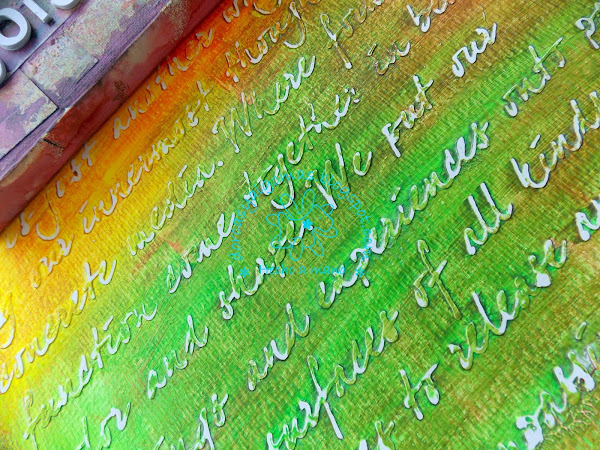 just another way
our innermost thoughts
concrete media. Where form
function come together in
color and shape. We put our
and experiences onto p
surfaces of all kinds
to release